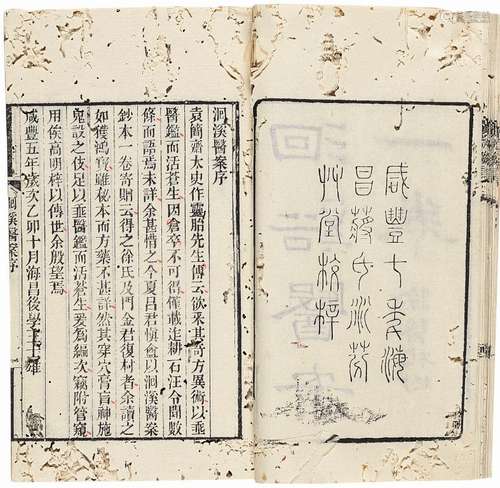 咸豐七年海
昌蔣氏衍芬
艸堂校梓
洄溪醫案序
袁簡齋太史作靈胎先生傳云欲采其奇方異術以垂
醫鑑而活蒼生因倉卒不可得僅載迮耕石汪令聞數
條而語焉未詳余甚惜之今夏呂君慎庵以洄溪醫案
鈔本一卷寄贈云得之徐氏及門金君復村者余讀之
如獲鴻寶雖秘本而方藥不甚詳然其穿穴膏肓神施
鬼設之伎足以垂醫鑑而活蒼生爰為編次竊附管窺
用俟高明梓以傳世余殷望焉
咸豐五年歲次乙卯十月海昌後學王士雄
洄溪醫案序